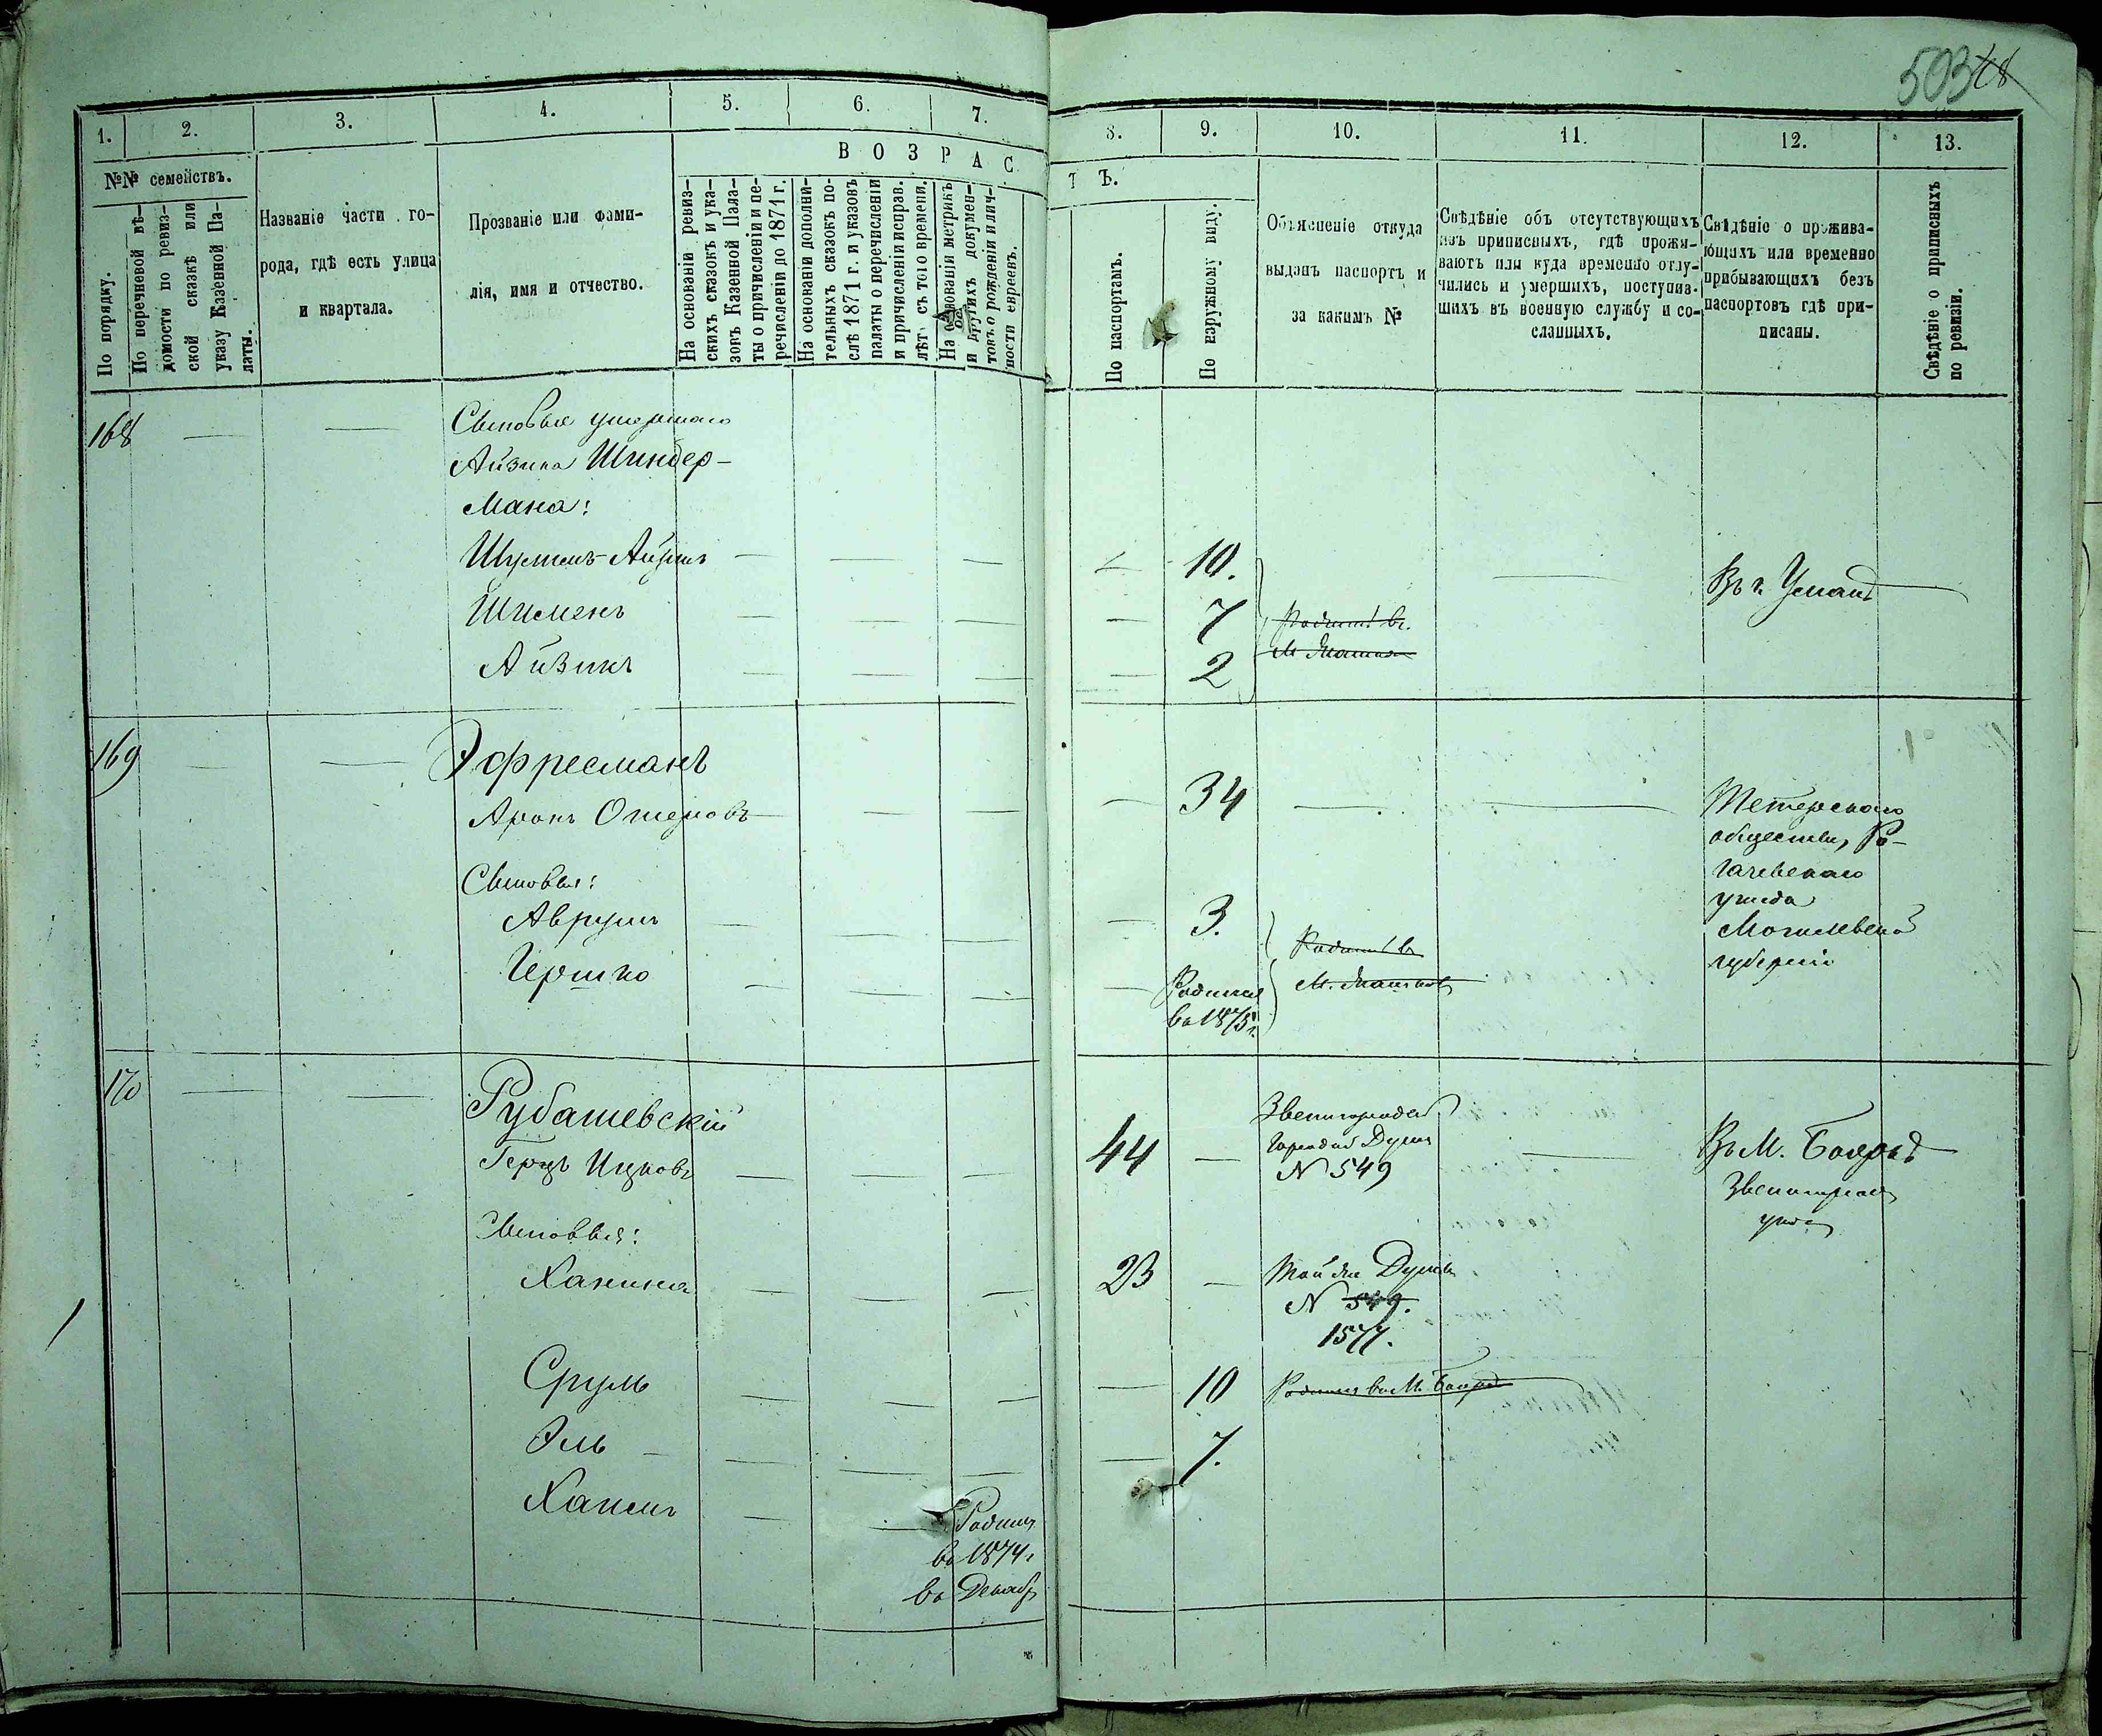 503 48
1.
2.
3.
4.
5.
6.
7.
8.
9.
10.
11.
12.
13.
№№ семействъ.
По порядку.
По перечневой вѣ-
домости по ревиз-
ской сказкѣ или
указу Казенной Па-
латы.
Названіе части го-
рода, гдѣ есть улица
и квартала.
Прозваніе или фами-
лія, имя и отчество.
ВОЗРАС
ТЪ.
На основаніи ревиз-
скихъ сказокъ и ука-
зокъ Казенной Пала-
ты о причисленіи и пе-
речисленіи до 1871 г.
На основаніи дополни-
тельныхъ сказокъ по-
слѣ 1871 г. и указовъ
палаты о перечисленіи
и причисленіи исправ.
лѣтъ съ того времени.
На основаніи метрикъ
и другихъ докумен-
товъ о рожденіи и лич-
ности евреевъ.
По паспортамъ.
По наружному виду.
Объясненіе откуда
выданъ паспортъ и
за какимъ №
Свѣдѣніе объ отсутствующихъ
изъ приписныхъ, гдѣ прожи-
ваютъ или куда временно отлу-
чились и умершихъ, поступив-
шихъ въ военную службу и со-
сланныхъ.
Свѣдѣніе о прожива-
ющихъ или временно
прибывающихъ безъ
паспортовъ гдѣ при-
писаны.
Свѣдѣніе о приписныхъ
по ревизіи.
168
Сыновья умершаго
Айзика Шиндер-
мана:
10.
Въ г. Умани
Шименъ
7
Родились въ
Айзикъ
2
169
Эфресманъ
Аронъ Ошеровъ
34
общества, Ро-
гачевскаго
уѣзда
Могилевской
губерніи
Сыновья:
Аврумъ
3.
Родились въ
Гершко
Родился
въ 1875 г.
170
Рубашевскій
Герцъ Ицковъ
44
Звенигородской
Городской Думы
N 549
Въ М. Бояркѣ
Звенигородск
уѣзда
Сыновья:
Ханина
23
Той же Думы
N 549.
1577.
Сруль
10
Родился въ М. Бояркѣ
Эль
7.
Хаимъ
Родился
въ 1874 г
въ Декабрѣ